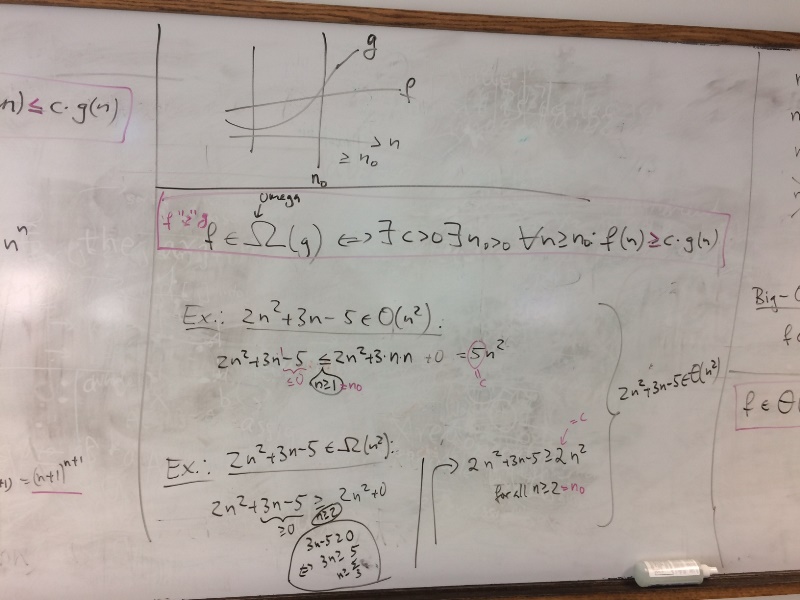 n) ≤ c·g(n)
n^n
+1) = (n+1)^{n+1}
g
f
> n
≥ n₀
n₀
Omega
f "≥" g
f ∈ Ω(g) ⇔ ∃ c>0 ∃ n₀>0 ∀n≥n₀: f(n) ≥ c·g(n)
Ex.: 2n²+3n-5 ∈ O(n²):
2n²+3n-5 ≤ 2n²+3·n·n +0 = 5n²
≤0 n≥1 =n₀ = c
Ex.: 2n²+3n-5 ∈ Ω(n²):
2n²+3n-5 ≥ 2n²+0
≥0 n≥2
3n-5≥0
⇔ 3n ≥ 5
n ≥ 5/3
=c
→ 2n²+3n-5 ≥ 2n²
for all n≥2 =n₀
2n²+3n-5 ∈ Θ(n²)
n
n
Big-
f ∈ Θ(